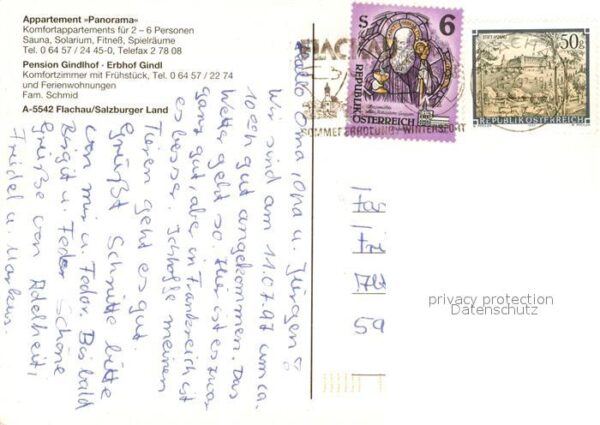 Appartement »Panorama«
Komfortappartements für 2 – 6 Personen
Sauna, Solarium, Fitneß, Spielräume
Tel. 0 64 57 / 24 45-0, Telefax 2 78 08
Pension Gindlhof · Erbhof Gindl
Komfortzimmer mit Frühstück, Tel. 0 64 57 / 22 74
und Ferienwohnungen
Fam. Schmid
A-5542 Flachau/Salzburger Land
Hallo Oma, Opa u. Jürgen
Wir sind am 11.07.97 um ca.
10 Uhr gut angekommen. Das
Wetter geht so. Hier ist es zwar
ganz gut, aber in Frankreich ist
es besser. Ich hoffe meinen
Tieren geht es gut.
Grüßt Schnitte bitte
von mir u. Fedor. Bis bald
Birgit u. Fedor Schöne
Grüße von Adelheit,
Friedel u. Markus.
S 6
REPUBLIK
ÖSTERREICH
50g
REPUBLIK ÖSTERREICH
SOMMERERHOLUNG - WINTERSPORT
59
privacy protection
Datenschutz